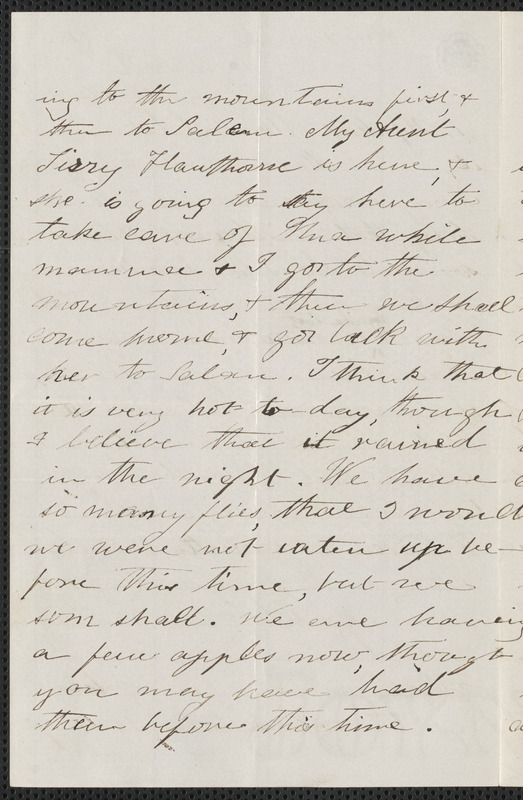 ing to the mountains first, &
then to Salem. My Aunt
Lizzy Hawthorne is here, &
she is going to stay here to
take care of Una while
mamma & I go to the
mountains, & then we shall
come home, & go back with
her to Salem. I think that
it is very hot to-day, though
I believe that it rained
in the night. We have
so many flies, that I would
we were not eaten up be-
fore this time, but we
soon shall. We are having
a few apples now, though
you may have had
them before this time.